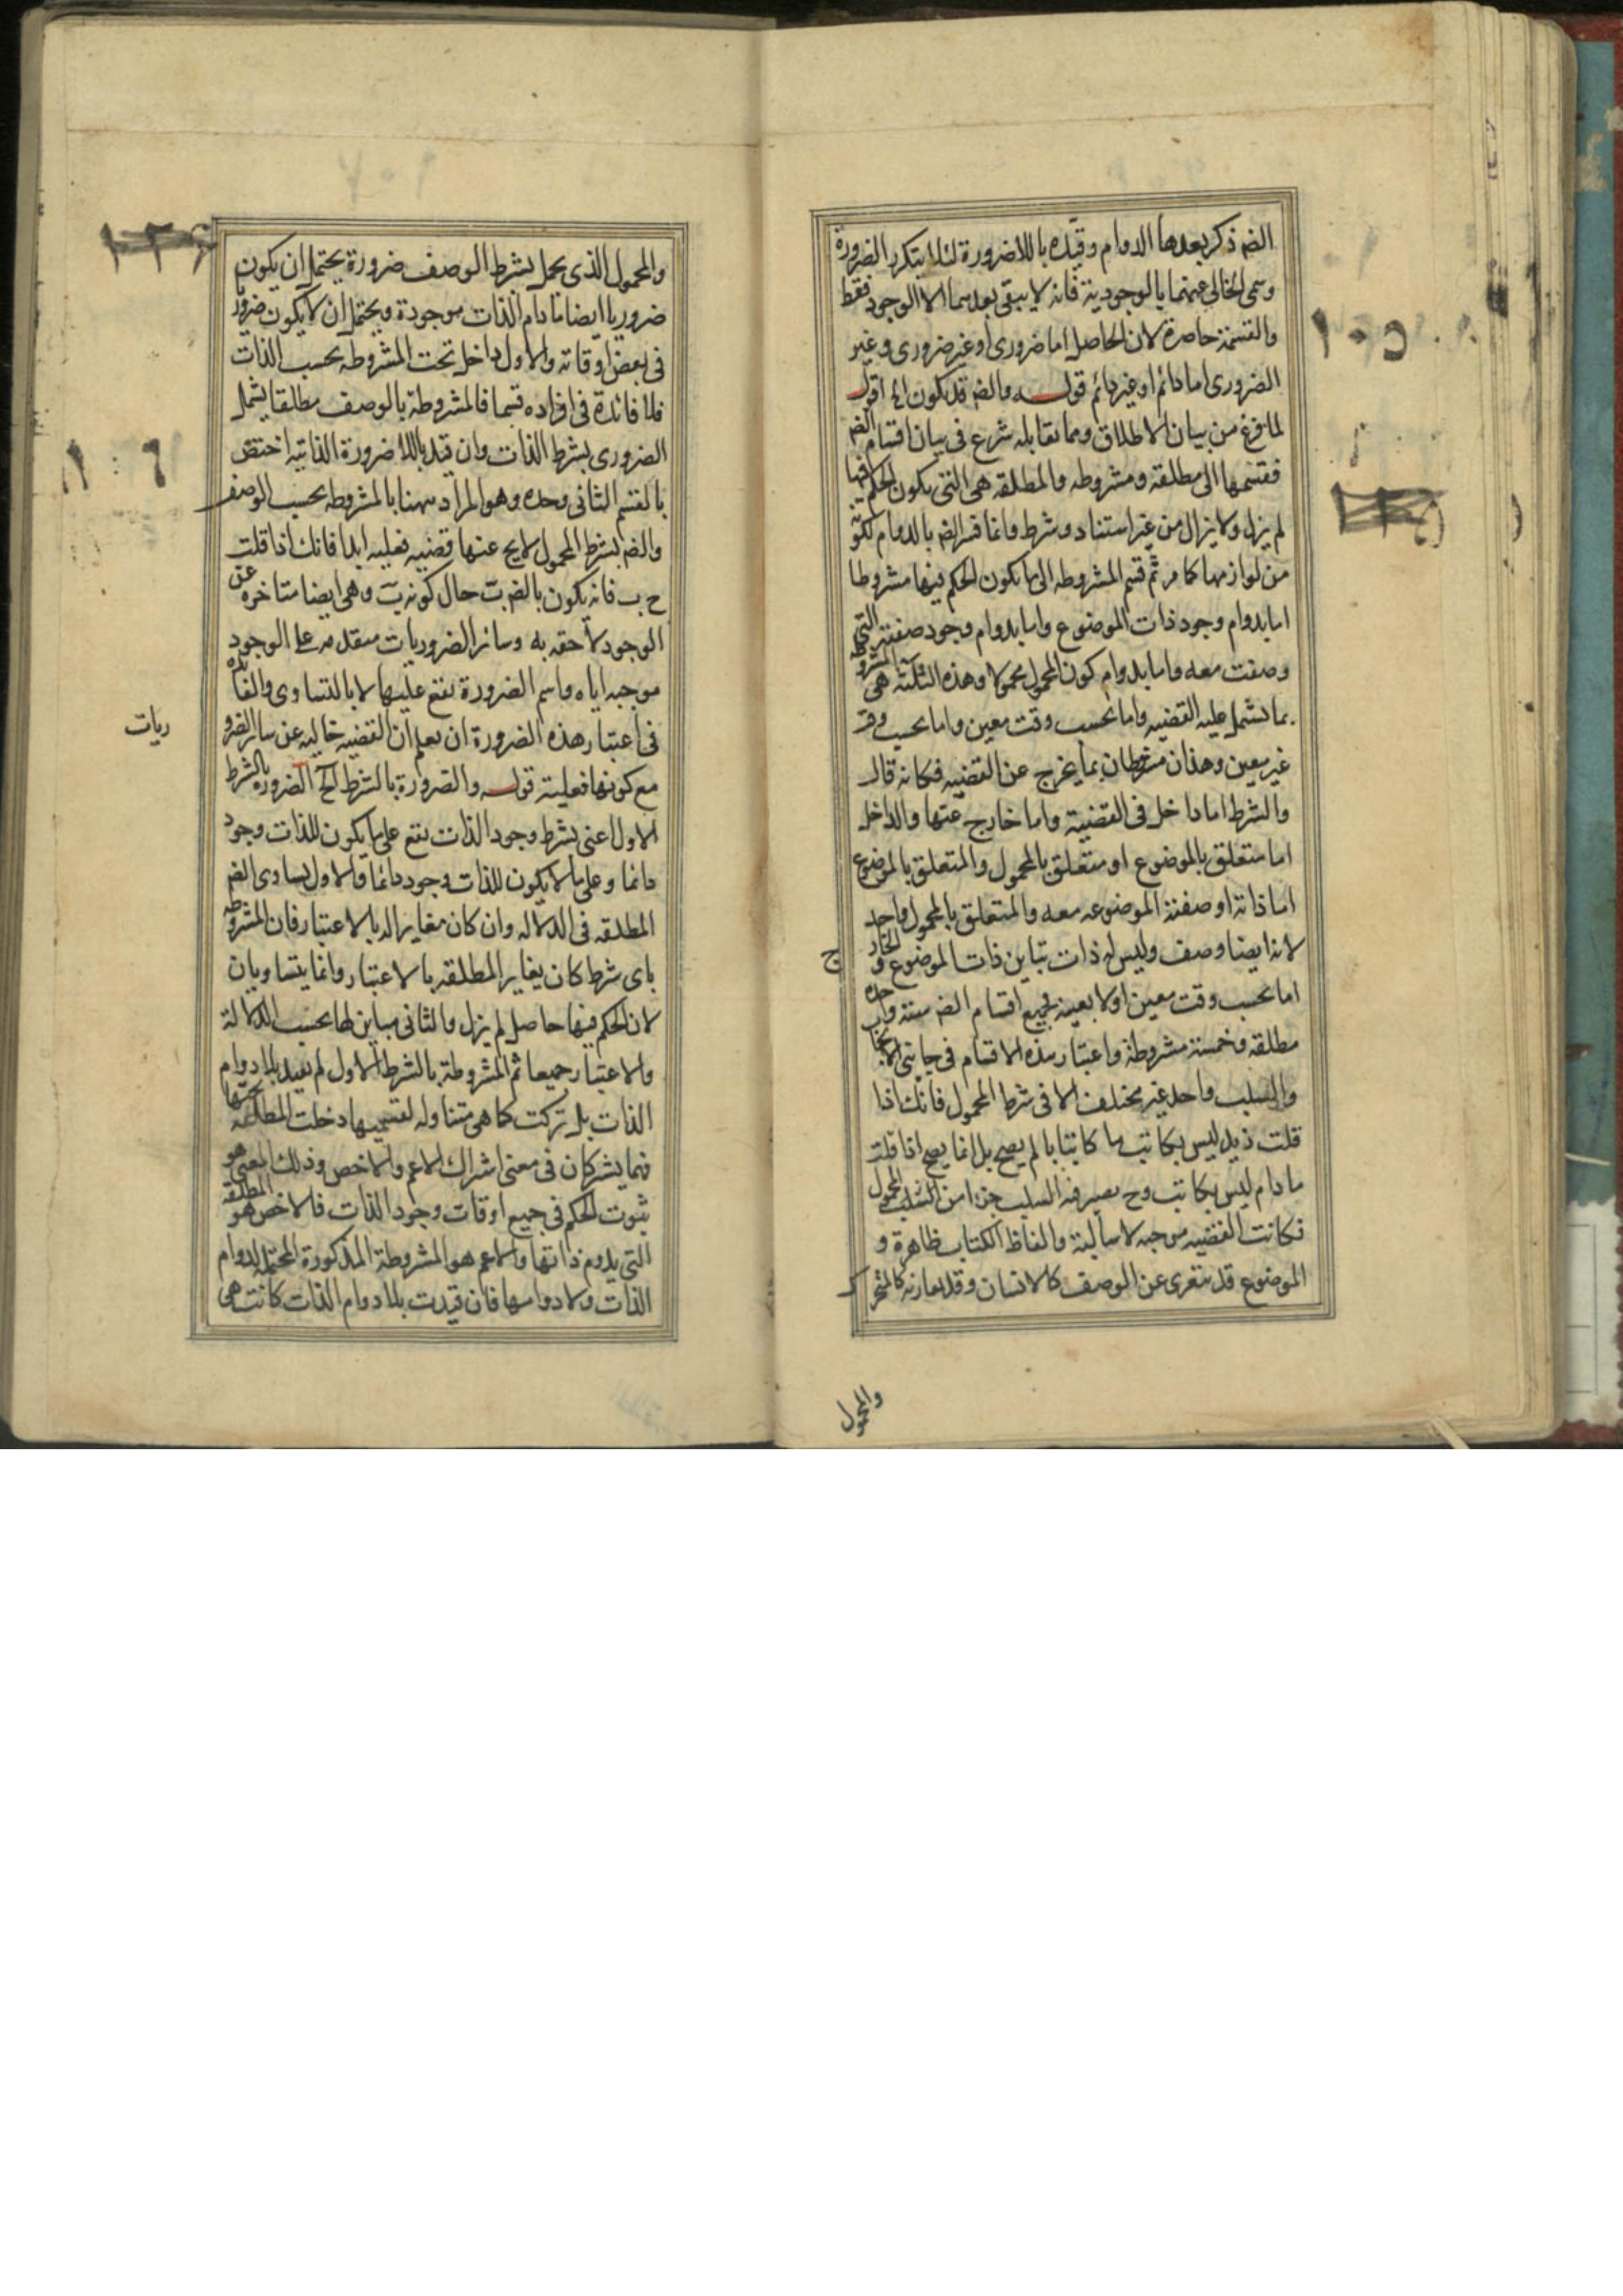 الضر ذكر بعدها الدوام وقيده باللاضرورة لئلا يتكرر الضرورة
وسمى الخالى عنهما بالوجودية فانه لا يبقى بعدهما الا الوجود فقط
والقسمة حاصرة لان الحاصل اما ضرورى او غير ضرورى وغير
الضرورى اما دائم او غير دائم قوله والضر قد يكون الخ اقول
لما فرغ من بيان الاطلاق وما يقابله شرع فى بيان اقسام الضر
فقسمها الى مطلقة ومشروطه والمطلقه هى التى يكون الحكم فيها
لم يزل ولا يزال من غير استناد وشرط وانما فسر الضر بالدوام لكونه
من لوازمها كما مر ثم قسم المشروطه الى ما يكون الحكم فيها مشروطا
اما بدوام وجود ذات الموضوع واما بدوام وجود صفته التى
وصفت معه واما بدوام كون المحمول محمولا وهذه الثلثة هى المشروطه
بما تشمل عليه القضيه واما بحسب وقت معين واما بحسب وقت
غير معين وهذان مشرطان بما يخرج عن القضيه فكانه قال
والشرط اما داخل فى القضية واما خارج عنها والداخل
اما متعلق بالموضوع او متعلق بالمحمول والمتعلق بالموضوع
اما ذاته او صفته الموضوعه معه والمتعلق بالمحمول واحد
لانه ايضا وصف وليس له ذات تباين ذات الموضوع والخارج
اما بحسب وقت معين اولا بعينه فجميع اقسام الضر ستة واحده
مطلقه وخمسة مشروطة واعتبار هذه الاقسام فى جانبى الايجاب
والسلب واحد غير مختلف الا فى شرط المحمول فانك اذا
قلت زيد ليس بكاتب ما كاتبا لم يصح بل انما يصح اذا قلت
ما دام ليس بكاتب وح يصير فيه السلب جزءا من المحمول
فكانت القضيه موجبه لا سالبة والفاظ الكتاب ظاهرة و
الموضوع قد يتعرى عن الوصف كالانسان وقد يقارنه كالمتحرك
والمحمول
١٠٥
والمحمول الذى يحمل بشرط الوصف ضرورة يحتمل ان يكون
ضروريا ايضا ما دام الذات موجودة ويحتمل ان لا يكون ضروريا
فى بعض اوقاته والاول داخل تحت المشروطه بحسب الذات
فلا فائدة فى افراده قسما فالمشروطة بالوصف مطلقا يشمل
الضرورى بشرط الذات وان قيد باللاضرورة الذاتيه اختص
بالقسم الثانى وحده وهو المراد ههنا بالمشروطه بحسب الوصف
والضر بشرط المحمول لا يخ عنها قضيه فعليه ابدا فانك اذا قلت
ح ب فانه يكون بالضر ب حال كونه ب وهى ايضا متاخره عن
الوجود لاحقه به وسائر الضروريات متقدمه على الوجود
موجبه اياه واسم الضرورة يقع عليها لا بالتساوى والفائده
فى اعتبار هذه الضرورة ان يعلم ان القضيه خاليه عن سائر الضرو
ريات
مع كونها فعلية قوله والضرورة بالشرط الخ الضروره بالشرط
الاول اعنى بشرط وجود الذات يقع على ما يكون للذات وجود
دائما وعلى ما لا يكون للذات وجود دائما والاول يساوى الضر
المطلقه فى الدلاله وان كان مغايرا له بالاعتبار فان المشروطه
باى شرط كان يغاير المطلقه بالاعتبار وانما يتساويان
لان الحكم فيها حاصل لم يزل والثانى مباين لها بحسب الدلالة
والاعتبار جميعا ثم المشروطة بالشرط الاول لم يقيد بلا دوام
الذات بل تركت كما هى متناوله لقسميها دخلت المطلقة تحتها
فهما يشتركان فى معنى اشراك الاعم والاخص وذلك المعنى هو
ثبوت الحكم فى جميع اوقات وجود الذات فالاخص هو المطلقه
التى يدوم ذاتها والاعم هو المشروطة المذكورة المحتمله لدوام
الذات ولا دوامها فان قيدت بلا دوام الذات كانت هى
١٠٦